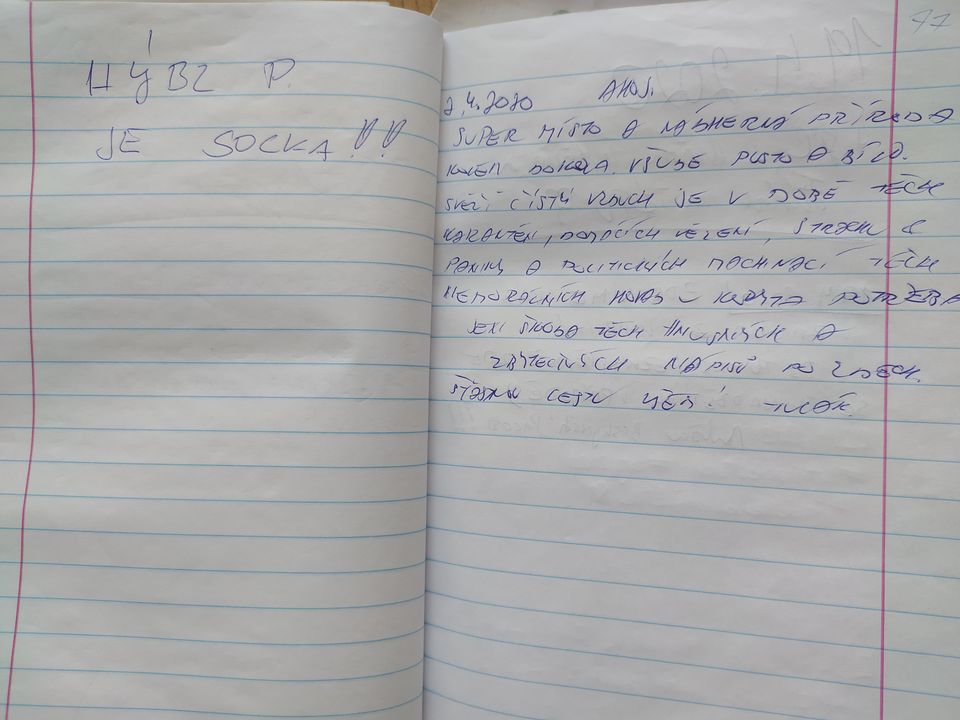 HÝBL P.
JE SOCKA!!
77
2.4.2020 AHOJ.
SUPER MÍSTO A NÁDHERNÁ PŘÍRODA
KOLEM DOKOLA. VŠUDE PUSTO A BÍLO.
SVĚŽÍ ČISTÝ VZDUCH JE V DOBĚ TĚCH
KARANTÉN, DOMÁCÍCH VĚZENÍ, STRACHU &
PANIKY A POLITICKÝCH MACHINACÍ TĚCH
NEMORÁLNÍCH POTŘEBA
JEN ŠKODA TĚCH HNUSNÝCH A
ZBYTEČNÝCH NÁPISŮ PO ZDECH.
ŠŤASTNOU CESTU VŠEM!